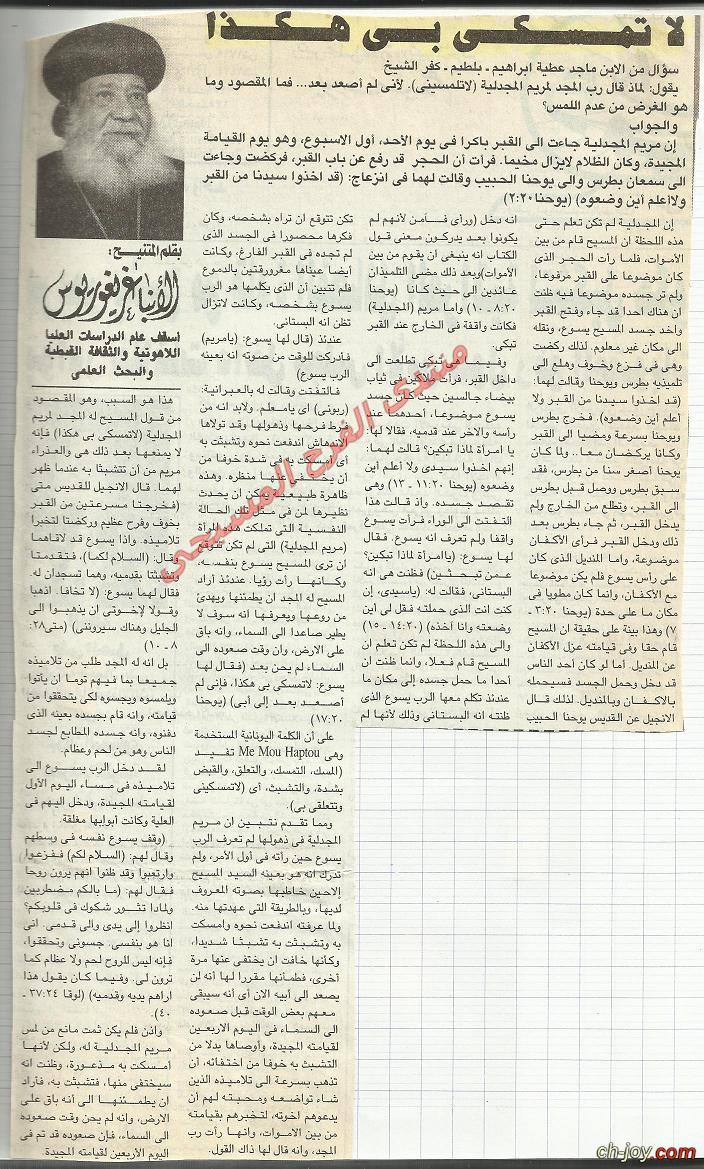 لا تمسكى بى هكذا
سؤال من الابن ماجد عطية ابراهيم ـ بلطيم ـ كفر الشيخ
يقول: لماذ قال رب المجد لمريم المجدلية (لاتلمسينى). لأنى لم أصعد بعد... فما المقصود وما
هو الغرض من عدم اللمس؟
والجواب
إن مريم المجدلية جاءت الى القبر باكرا فى يوم الأحد، أول الاسبوع، وهو يوم القيامة
المجيدة، وكان الظلام لايزال مخيما. فرأت أن الحجر قد رفع عن باب القبر، فركضت وجاءت
الى سمعان بطرس والى يوحنا الحبيب وقالت لهما فى انزعاج: (قد اخذوا سيدنا من القبر
ولاأعلم أين وضعوه) (يوحنا٢:٢٠)
بقلم المتنيح:
الأنبا غريغوريوس
أسقف عام الدراسات العليا
اللاهوتية والثقافة القبطية
والبحث العلمى
إن المجدلية لم تكن تعلم حتى
هذه اللحظة ان المسيح قام من بين
الأموات، فلما رات الحجر الذى
كان موضوعا على القبر مرفوعا،
ولم تر جسده موضوعا فيه ظنت
ان هناك احدا قد جاء وفتح القبر
واخذ جسد المسيح يسوع، ونقله
الى مكان غير معلوم. لذلك ركضت
وهى فى فزع وخوف وهلع الى
تلميذيه بطرس ويوحنا وقالت لهما:
(قد اخذوا سيدنا من القبر ولا
أعلم أين وضعوه). فخرج بطرس
ويوحنا بسرعة ومضيا الى القبر
وكانا يركضان معا.. ولما كان
يوحنا أصغر سنا من بطرس، فقد
سبق بطرس ووصل قبل بطرس
الى القبر، وتطلع من الخارج ولم
يدخل القبر، ثم جاء بطرس بعد
ذلك ودخل القبر فرأى الأكفان
موضوعة، واما المنديل الذى كان
على رأس يسوع فلم يكن موضوعا
مع الأكفان، وانما كان مطويا فى
مكان ما على حدة (يوحنا ٣:٢٠ ـ
٧) وهذا بينة على حقيقة ان المسيح
قام حقا وفى قيامته عزل الأكفان
عن المنديل. أما لو كان أحد الناس
قد دخل وحمل الجسد فسيحمله
بالأكفان وبالمنديل. لذلك قال
الانجيل عن القديس يوحنا الحبيب
انه دخل (ورأى فآمن لأنهم لم
يكونوا بعد يدركون معنى قول
الكتاب انه ينبغى ان يقوم من بين
الأموات)وبعد ذلك مضى التلميذان
عائدين الى حيث كانا (يوحنا
٨:٢٠ ـ ١٠) واما مريم (المجدلية)
فكانت واقفة فى الخارج عند القبر
تبكى.
وفيما هى تبكى تطلعت الى
داخل القبر، فرأت ملاكين فى ثياب
بيضاء جالسين حيث كان جسد
يسوع موضوعا، أحدهما عند
رأسه والآخر عند قدميه، فقالا لها:
يا امرأة لماذا تبكين؟ قالت لهما:
إنهم اخذوا سيدى ولا أعلم اين
وضعوه (يوحنا ١١:٢٠ ـ ١٣) وهى
تقصد جسده. واذ قالت هذا
التفتت الى الوراء فرأت يسوع
واقفا ولم تعرف انه يسوع. فقال
لها يسوع: (ياامرأة لماذا تبكين؟
عمن تبحثين) فظنت هى انه
البستانى، فقالت له: (ياسيدى، إن
كنت انت الذى حملته فقل لى اين
وضعته وانا اخذه) (١٤:٢٠ ـ ١٥)
والى هذه اللحظة لم تكن تعلم ان
المسيح قام فعلا، وانما ظنت ان
أحدا ما حمل جسده إلى مكان ما
عندئذ تكلم معها الرب يسوع الذى
ظنته انه البستانى وذلك لأنها لم
تكن تتوقع ان تراه بشخصه، وكان
فكرها محصورا فى الجسد الذى
لم تجده فى القبر الفارغ، وكانت
أيضا عيناها مغرورقتين بالدموع
فلم تتبين أن الذى يكلمها هو الرب
يسوع بشخصه، وكانت لاتزال
تظن انه البستانى.
عندئذ (قال لها يسوع: (يامريم)
فأدركت للوقت من صوته انه بعينه
الرب يسوع)
فالتفتت وقالت له بالعبرانية:
(ربونى) اى يامعلم. ولابد انه من
فرط فرحها وذهولها وقد تولاها
الاندهاش اندفعت نحوه وتشبثت به
اى امسكت به فى شدة خوفا من
أن يختفى عنها منظره. وهذه
ظاهرة طبيعية يمكن ان يحدث
نظيرها لمن فى مثل تلك الحالة
النفسية التى تملكت هذه المرأة
(مريم المجدلية) التى لم تكن تتوقع
ان ترى المسيح يسوع بنفسه،
وكأنها رأت رؤيا. عندئذ أراد
المسيح له المجد ان يطمئنها ويهدئ
من روعها ويعرفها انه سوف لا
يطير صاعدا الى السماء، انه باق
على الارض، وان وقت صعوده الى
السماء لم يحن بعد (فقال لها
يسوع: لاتمسكى بى هكذا، فإنى لم
أصعد بعد إلى أبى) (يوحنا
١٧:٢٠)
على أن الكلمة اليونانية المستخدمة
وهى Me Mou Haptou تفيد
(المسك، التمسك، والتعلق، والقبض
بشدة، والتشبث، أى (لاتمسكينى
وتتعلقى بى).
ومما تقدم نتبين ان مريم
المجدلية فى ذهولها لم تعرف الرب
يسوع حين رأته فى أول الأمر، ولم
تدرك انه هو بعينه السيد المسيح
إلاحين خاطبها بصوته المعروف
لديها، وبالطريقة التى عهدتها منه.
ولما عرفته اندفعت نحوه وامسكت
به وتشبثت به تشبثا شديدا،
وكأنها خافت ان يختفى عنها مرة
أخرى، فطمأنها مقررا لها أنه لن
يصعد الى أبيه الآن أى أنه سيبقى
معهم بعض الوقت قبل صعوده
الى السماء فى اليوم الاربعين
لقيامته المجيدة، وأوصاها بدلا من
التشبث به خوفا من اختفائه، أن
تذهب بسرعة الى تلاميذه الذين
شاء تواضعه ومحبته لهم أن
يدعوهم اخوته، لتخبرهم بقيامته
من بين الاموات، وانها رأت رب
المجد، وانه قال لها ذاك القول.
هذا هو السبب، وهو المقصود
من قول المسيح له المجد لمريم
المجدلية (لاتمسكى بى هكذا) فإنه
لا يمنعها بعد ذلك هى والعذراء
مريم من أن تتشبثا به عندما ظهر
لهما. قال الانجيل للقديس متى
(فخرجتا مسرعتين من القبر
بخوف وفرح عظيم وركضتا لتخبرا
تلاميذه. واذا يسوع قد لاقاهما
وقال: (السلام لكما)، فتقدمتا
وتشبثتا بقدميه، وهما تسجدان له.
فقال لهما يسوع: (لا تخافا. اذهبا
وقولا لإخوتى ان يذهبوا الى
الجليل وهناك سيروننى) (متى٢٨:
٨ ـ ١٠)
بل انه له المجد طلب من تلاميذه
جميعا بما فيهم توما ان يأتوا
ويلمسوه ويجسوه لكى يتحققوا من
قيامته، وانه قام بجسده بعينه الذى
دفنوه، وانه جسده المطابع لجسد
الناس وهو من لحم وعظام.
لقد دخل الرب يسوع الى
تلاميذه فى مساء اليوم الأول
لقيامته المجيدة، ودخل اليهم فى
العلية وكانت أبوابها مغلقة.
(وقف يسوع نفسه فى وسطهم
وقال لهم: (السلام لكم) ففزعوا
وارتعبوا وقد ظنوا انهم يرون روحا
فقال لهم: (ما بالكم مضطربين
ولماذا تثور شكوك فى قلوبكم؟
انظروا إلى يدى والى قدمى. انى
انا هو بنفسى. جسونى وتحققوا،
فإنه ليس للروح لحم ولا عظام كما
ترون لى. وفيما كان يقول هذا
اراهم يديه وقدميه) (لوقا ٣٧:٢٤ ـ
٤٠).
واذن فلم يكن ثمت مانع من لمس
مريم المجدلية له، ولكن لأنها
أمسكت به مذعورة، وظنت انه
سيختفى منها، فتشبثت به، فأراد
ان يطمئنها الى أنه باق على
الارض، وانه لم يحن وقت صعوده
الى السماء، فإن صعوده قد تم فى
اليوم الأربعين لقيامته المجيدة.
منتدى الفرح المسيحى
ch-joy.com